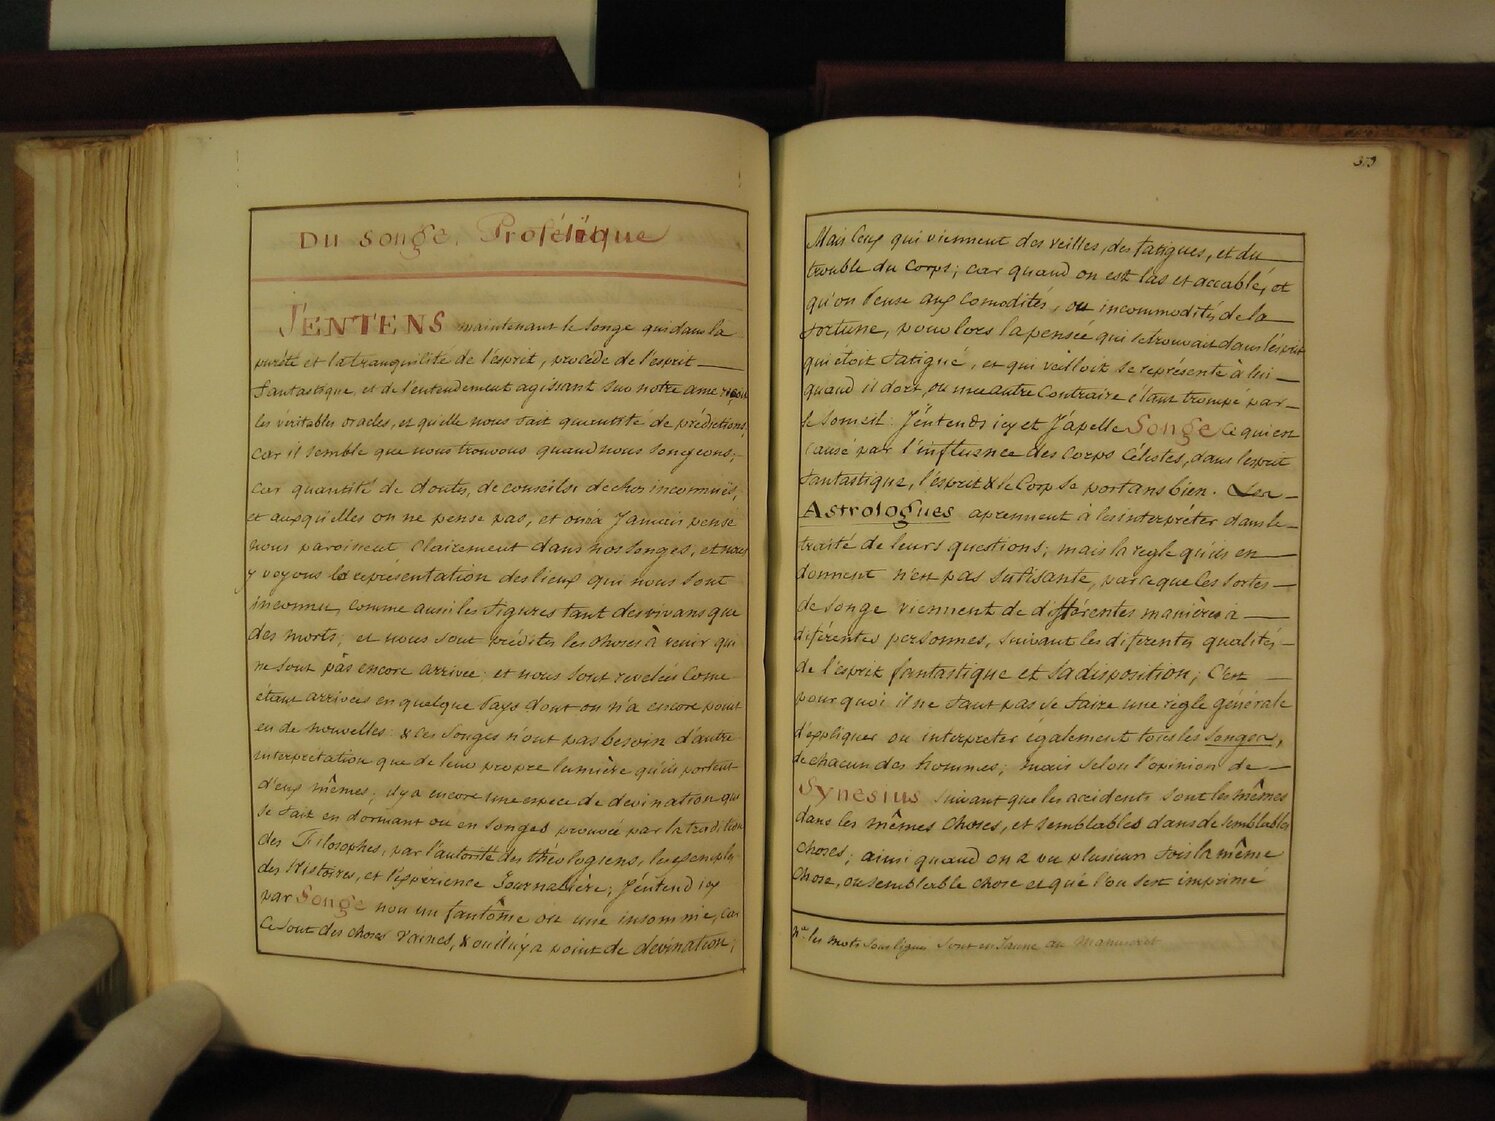 Du Songe Proféti̇que
J'ENTENS maintenant le songe qui dans la
pureté et la tranquilité de l'esprit, procede de l'esprit
fantastique, et de l'entendement agissant sur notre ame reçoit
les véritables oracles, et qu'elle nous fait quantité de prédictions,
car il semble que nous trouvons quand nous songeons;
car quantité de doutes, de conseils de choses inconnuës,
et auxqu'elles on ne pense pas, et on n'a Jamais pensé
nous paroissent clairement dans nos songes, et nous
y voyons la representation des lieux qui nous sont
inconnu, comme aussi les figures tant des vivans que
des morts; et nous sont prédites les choses à venir qui
ne sont pas encore arrivée; et nous sont revelées come
étant arrivées en quelque Pays dont on n'a encore point
eu de nouvelles & ces songes n'ont pas besoin d'autre
interprétation que de leur propre lumière qu'ils portent
d'eux mêmes; il y a encore une espece de devination qui
se fait en dormant ou en songes prouvée par la tradition
des Filosophes, par l'autorité des théologiens, les exemples
des Histoires, et l'experience Journalière; J'éntend icy
par Songe non un fantôme ou une insomnie, car
ce sont des choses vaines, & ou il n'y a point de devination;
373
Mais ceux qui viennent des veilles, des fatigues, et du
trouble du Corps; car quand on est las et accablé, et
qu'on pense aux comodités, ou incommodités de la
fortune, pour lors la pensée qui se trouvait dans l'ésprit
qui étoit fatigué, et qui veilloit se représente à lui
quand il dort, ou une autre Contraire étant trompé par
le someil: J'éntends icy et J'apelle Songe ce qui est
causé par l'influence des Corps Célestes, dans l'esprit
fantastique, l'ésprit & le Corp se portans bien. Les
Astrologues aprennent à les interpréter dans le
traité de leurs questions; mais la regle qu'ils en
donnent n'est pas sufisante, parceque les sortes
de songe viennent de différentes manières à
diférentes personnes, suivant les diferentes qualités
de l'ésprit fantastique et sa disposition; C'est
pourquoi il ne faut pas se faire une règle générale
d'éxpliquer ou interpreter également tous les songes,
de chacun des hommes; mais selon l'opinion de
Synesius suivant que les accidents sont les mêmes
dans les mêmes choses, et semblables dans de semblables
choses; ainsi quand on a vu plusieurs fois la même
chose, ou semblable chose et que l'on s'est imprimé
Na. les mots soulignés sont en Jaune au Manuscrit